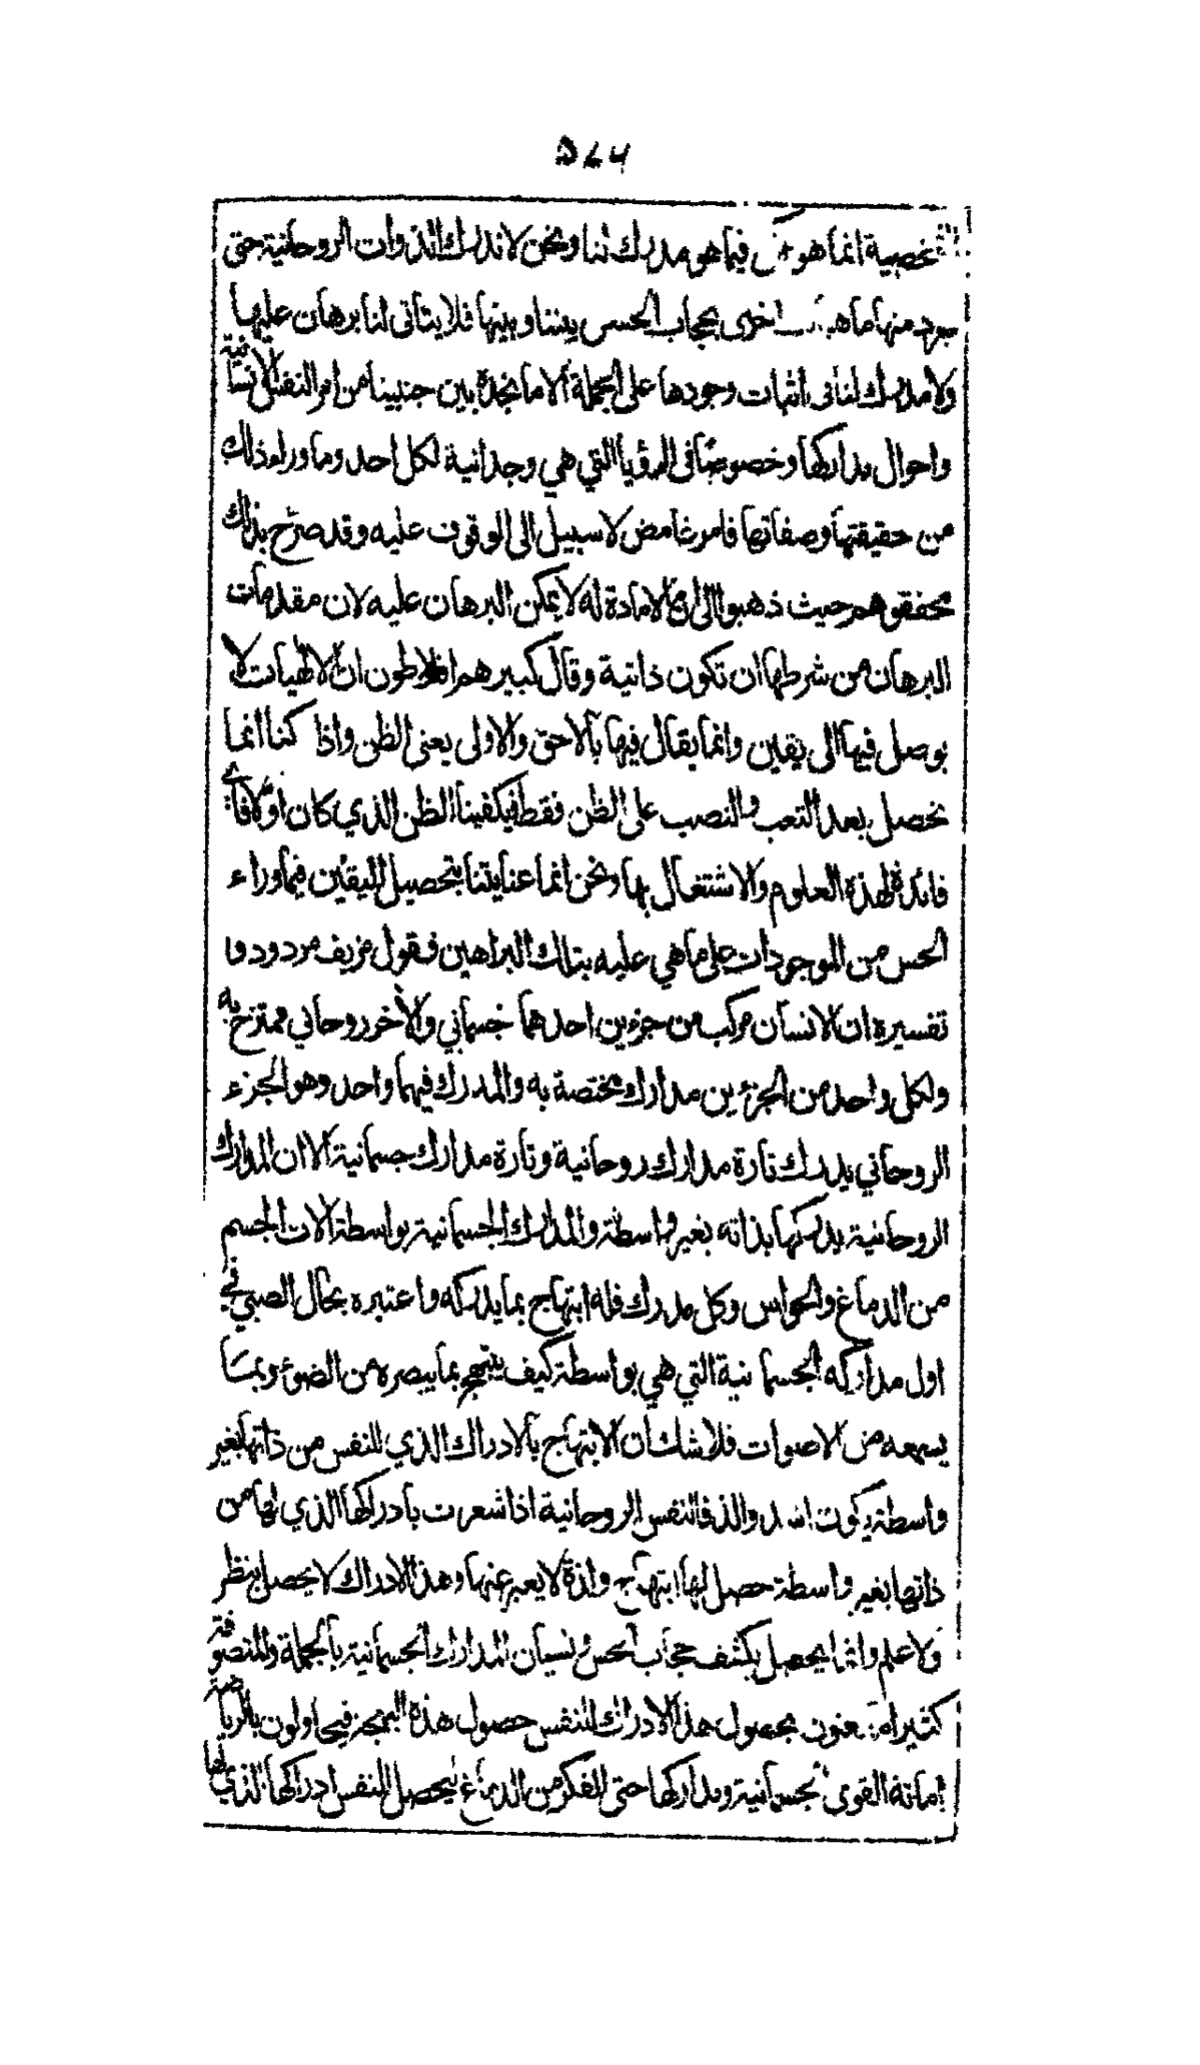 ٥٧٦
الشخصية انما هو ممكن فيما هو مدرك لنا ونحن لا ندرك الذوات الروحانية حتى
نجرد منها ماهيات اخرى بحجاب الحس بيننا وبينها فلا يتاتى لنا برهان عليها
ولا مدرك لنا فى اثبات وجودها على الجملة الا ما نجده بين جنبينا من امر النفس الانسانية
واحوال مداركها وخصوصًا فى الرؤيا التي هي وجدانية لكل احد وما وراء ذلك
من حقيقتها وصفاتها فامر غامض لا سبيل الى الوقوف عليه وقد صرّح بذلك
محققوهم حيث ذهبوا الى ان ما لا مادة له لا يمكن البرهان عليه لان مقدمات
البرهان من شرطها ان تكون ذاتية وقال كبيرهم افلاطون ان الالهيات لا
يوصل فيها الى يقين وانما يقال فيها بالاحق والاولى يعنى الظن واذا كنا انما
نحصل بعد التعب والنصب على الظن فقط فيكفينا الظن الذي كان اوّلا فاي
فائدة لهذه العلوم والاشتغال بها ونحن انما عنايتنا بتحصيل اليقين فيما وراء
الحس من الموجودات على ما هي عليه بتلك البراهين فقول مزيف مردود و
تفسيره ان الانسان مركب من جزءين احدهما جسماني والأخر روحاني ممتزج به
ولكل واحد من الجزءين مدارك مختصة به والمدرك فيهما واحد وهو الجزء
الروحاني يدرك تارة مدارك روحانية وتارة مدارك جسمانية الا ان المدارك
الروحانية يدركها بذاته بغير واسطة والمدارك الجسمانية بواسطة الات الجسم
من الدماغ والحواس وكل مدرك فله ابتهاج بما يدركه واعتبره بحال الصبي في
اول مداركه الجسمانية التي هي بواسطة كيف يبتهج بما يبصره من الضوء وبما
يسمعه من الاصوات فلا شك ان الابتهاج بالادراك الذي للنفس من ذاتها بغير
واسطة يكون اشد والذ فالنفس الروحانية اذا شعرت بادراكها الذي لها من
ذاتها بغير واسطة حصل لها ابتهاج ولذة لا يعبر عنها وهذا الادراك لا يحصل بنظر
ولا علم وانما يحصل بكشف حجاب الحس ونسيان المدارك الجسمانية بالجملة والمتصوفة
كثيرا ما يعنون بحصول هذا الادراك للنفس حصول هذه البهجة فيحاولون بالرياضة
اماتة القوى الجسمانية ومداركها حتى الفكر من الدماغ ليحصل للنفس ادراكها الذي لها